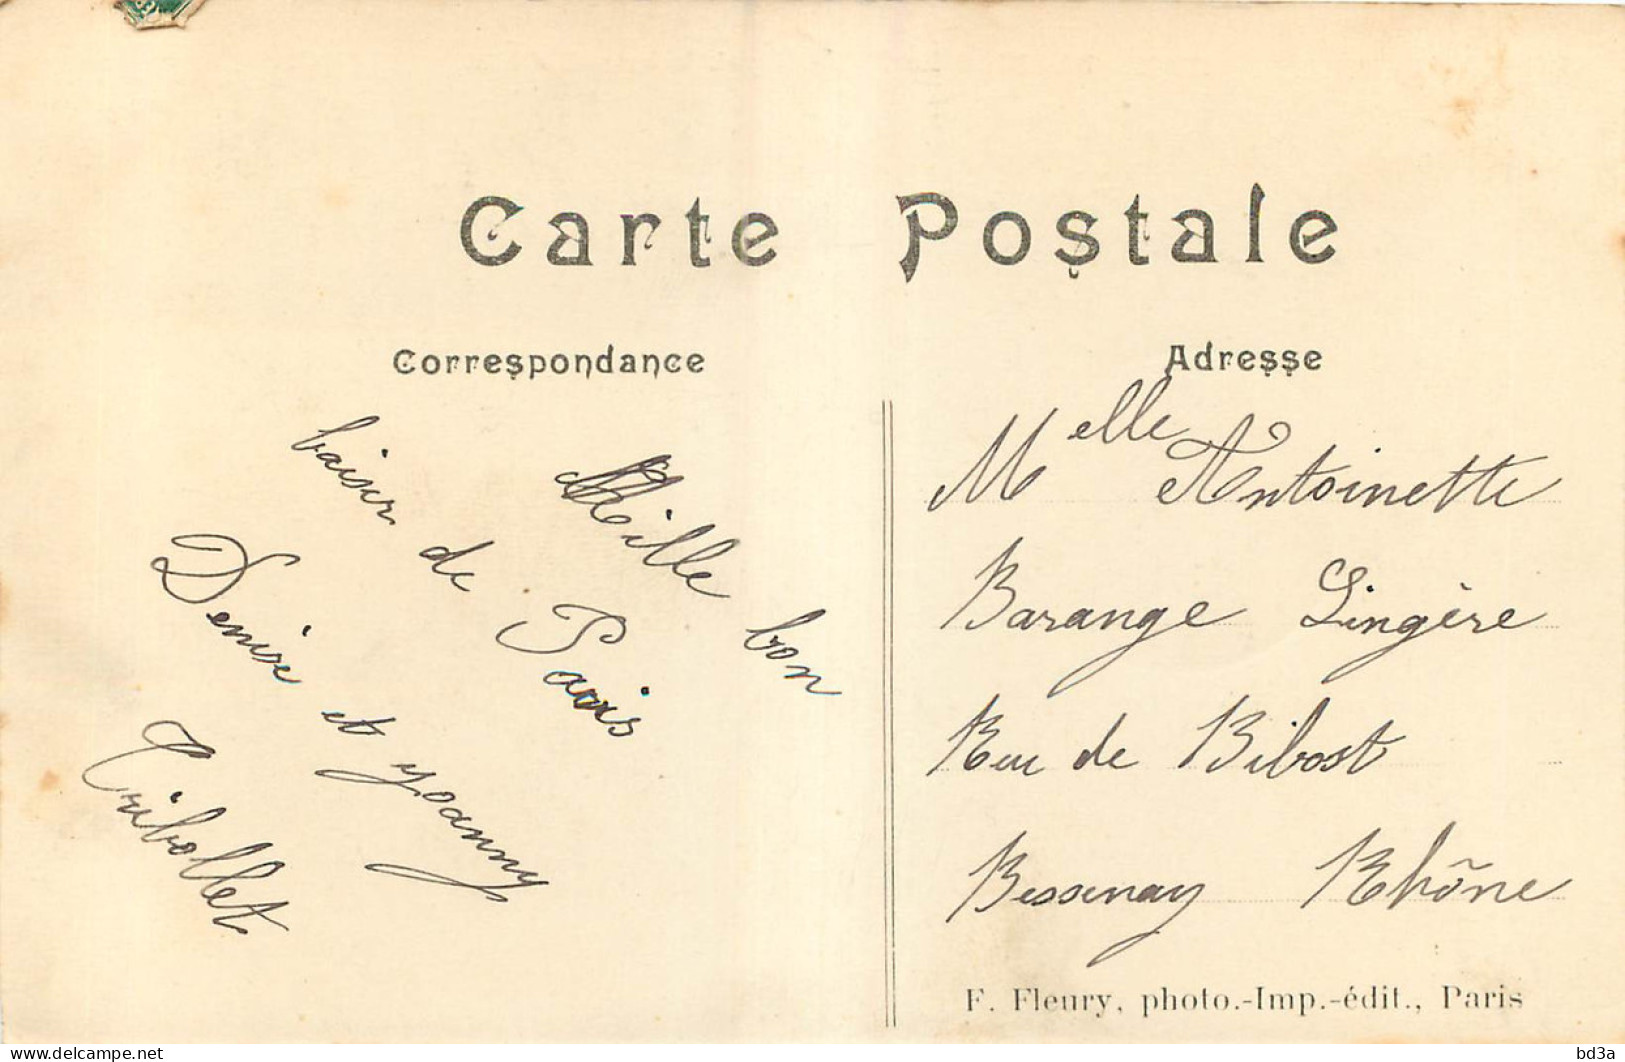 Carte Postale
Correspondance
Mille bon
baiser de Paris
Denise et Yoanny
Tribollet
Adresse
Melle Antoinette
Barange Lingère
Rue de Bibost
Bessenay Rhône
F. Fleury, photo.-Imp.-édit., Paris
delcampe.net
bd3a